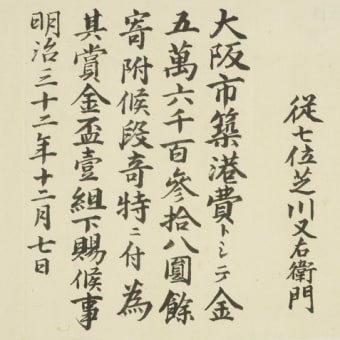 從七位芝川又右衛門
大阪市築港費トシテ金
五萬六千百參拾八圓餘
寄附候段奇特ニ付為
其賞金盃壹組下賜候事
明治三十二年十二月七日